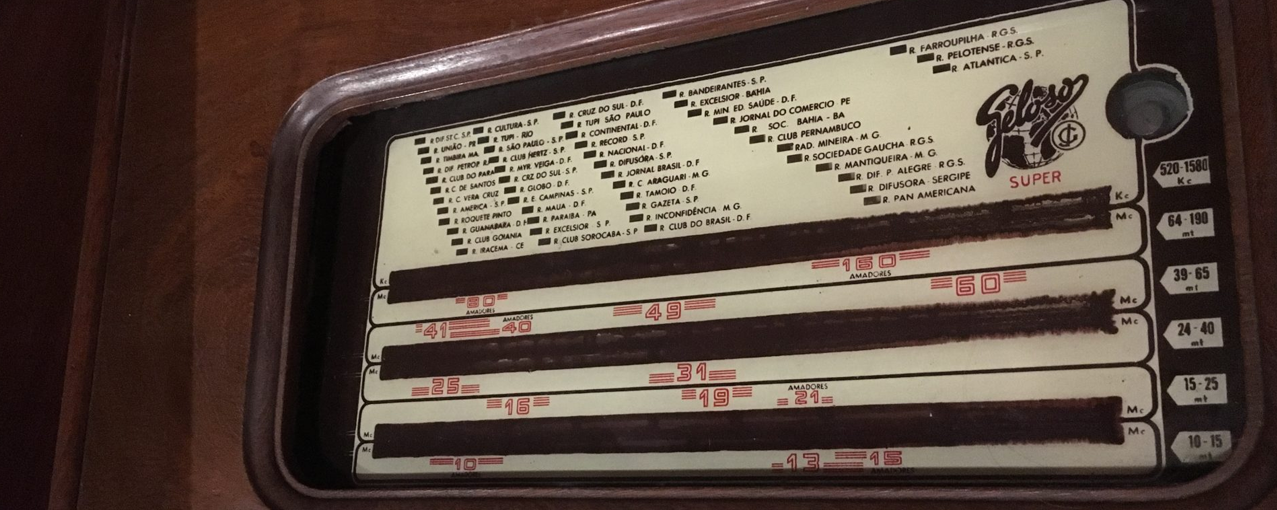 R. FARROUPILHA - R.G.S.
R. PELOTENSE - R.G.S.
R. ATLANTICA - S. P.
R. BANDEIRANTES - S. P.
R. EXCELSIOR - BAHIA
R. MIN. ED. SAÚDE - D. F.
R. JORNAL DO COMERCIO - PE
R. SOC. BAHIA - BA
R. CLUB PERNAMBUCO
RAD. MINEIRA - M. G.
R. SOCIEDADE GAUCHA - R.G.S.
R. MANTIQUEIRA - M. G.
R. DIF. P. ALEGRE - R.G.S.
R. DIFUSORA - SERGIPE
R. PAN AMERICANA
R. CRUZ DO SUL - D. F.
R. TUPI SÃO PAULO
R. CONTINENTAL - D. F.
R. RECORD S. P.
R. NACIONAL - D. F.
R. DIFUSÓRA - S. P.
R. JORNAL BRASIL - D. F.
R. C. ARAGUARI - M. G
R. TAMOIO D. F.
R. GAZETA - S. P
R. INCONFIDÊNCIA M. G.
R. CLUB DO BRASIL - D. F.
R. CULTURA - S. P.
R. TUPI - RIO
R. SÃO PAULO - S. P.
R. CLUB HERTZ - S. P.
R. MYR. VEIGA - D. F.
R. CRZ DO SUL - S. P.
R. GLOBO - D. F.
R. E. CAMPINAS - S. P.
R. MAUA - D. F.
R. PARAIBA - PA
R. EXCELSIOR - S. P.
R. CLUB SOROCABA - S. P
R. DIF ST C. S.P.
R. UNIÃO - PR
R. TIMBIRA MA.
R. DIF PETROP. R.
R. CLUB DO PARA
R. C. DE SANTOS
R. C. VERA CRUZ
R. AMÉRICA - S. P
R. ROQUETE PINTO
R. GUANABARA - D. F
R. CLUB GOIANIA
R. IRACEMA - CE
Geloso
SUPER
520-1580
Kc
64-190
mt
39-65
mt
24-40
mt
15-25
mt
10-15
Kc
Kc
Mc
Mc
80
AMADORES
160
AMADORES
41
AMADORES
40
49
60
Mc
Mc
Mc
Mc
25
31
16
19
AMADORES
21
Mc
Mc
Mc
Mc
10
13
15
AMADORES